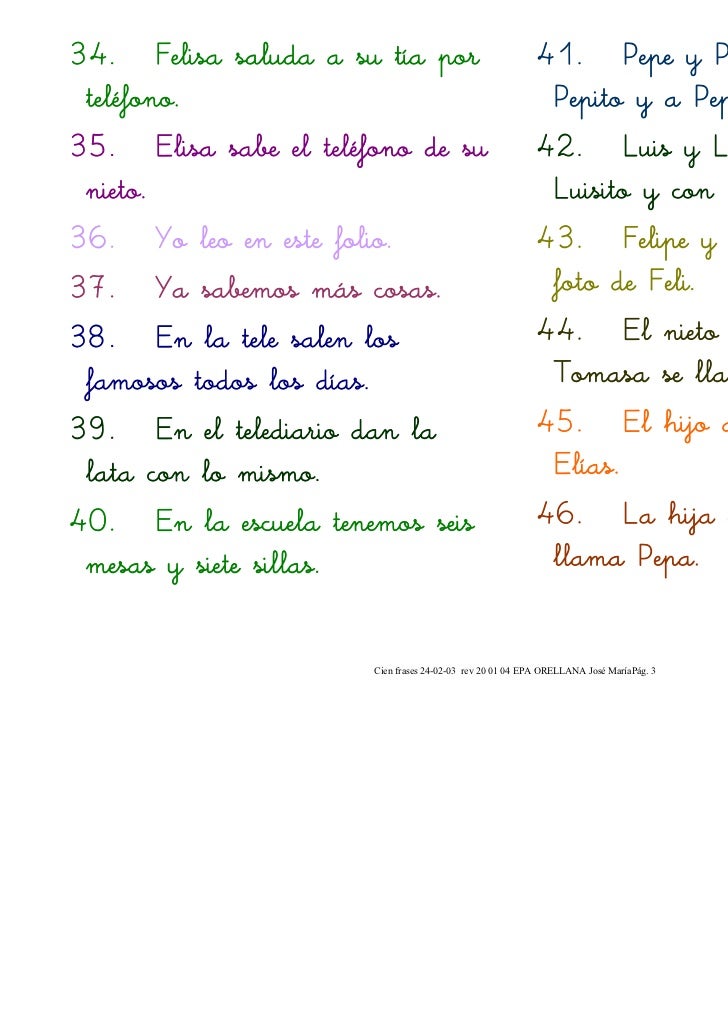 34. Felisa saluda a su tía por
teléfono.
35. Elisa sabe el teléfono de su
nieto.
36. Yo leo en este folio.
37. Ya sabemos más cosas.
38. En la tele salen los
famosos todos los días.
39. En el telediario dan la
lata con lo mismo.
40. En la escuela tenemos seis
mesas y siete sillas.
41. Pepe y P
Pepito y a Pep
42. Luis y L
Luisito y con
43. Felipe y
foto de Feli.
44. El nieto
Tomasa se lla
45. El hijo
Elías.
46. La hija
llama Pepa.
Cien frases 24-02-03 rev 20 01 04 EPA ORELLANA José MaríaPág. 3